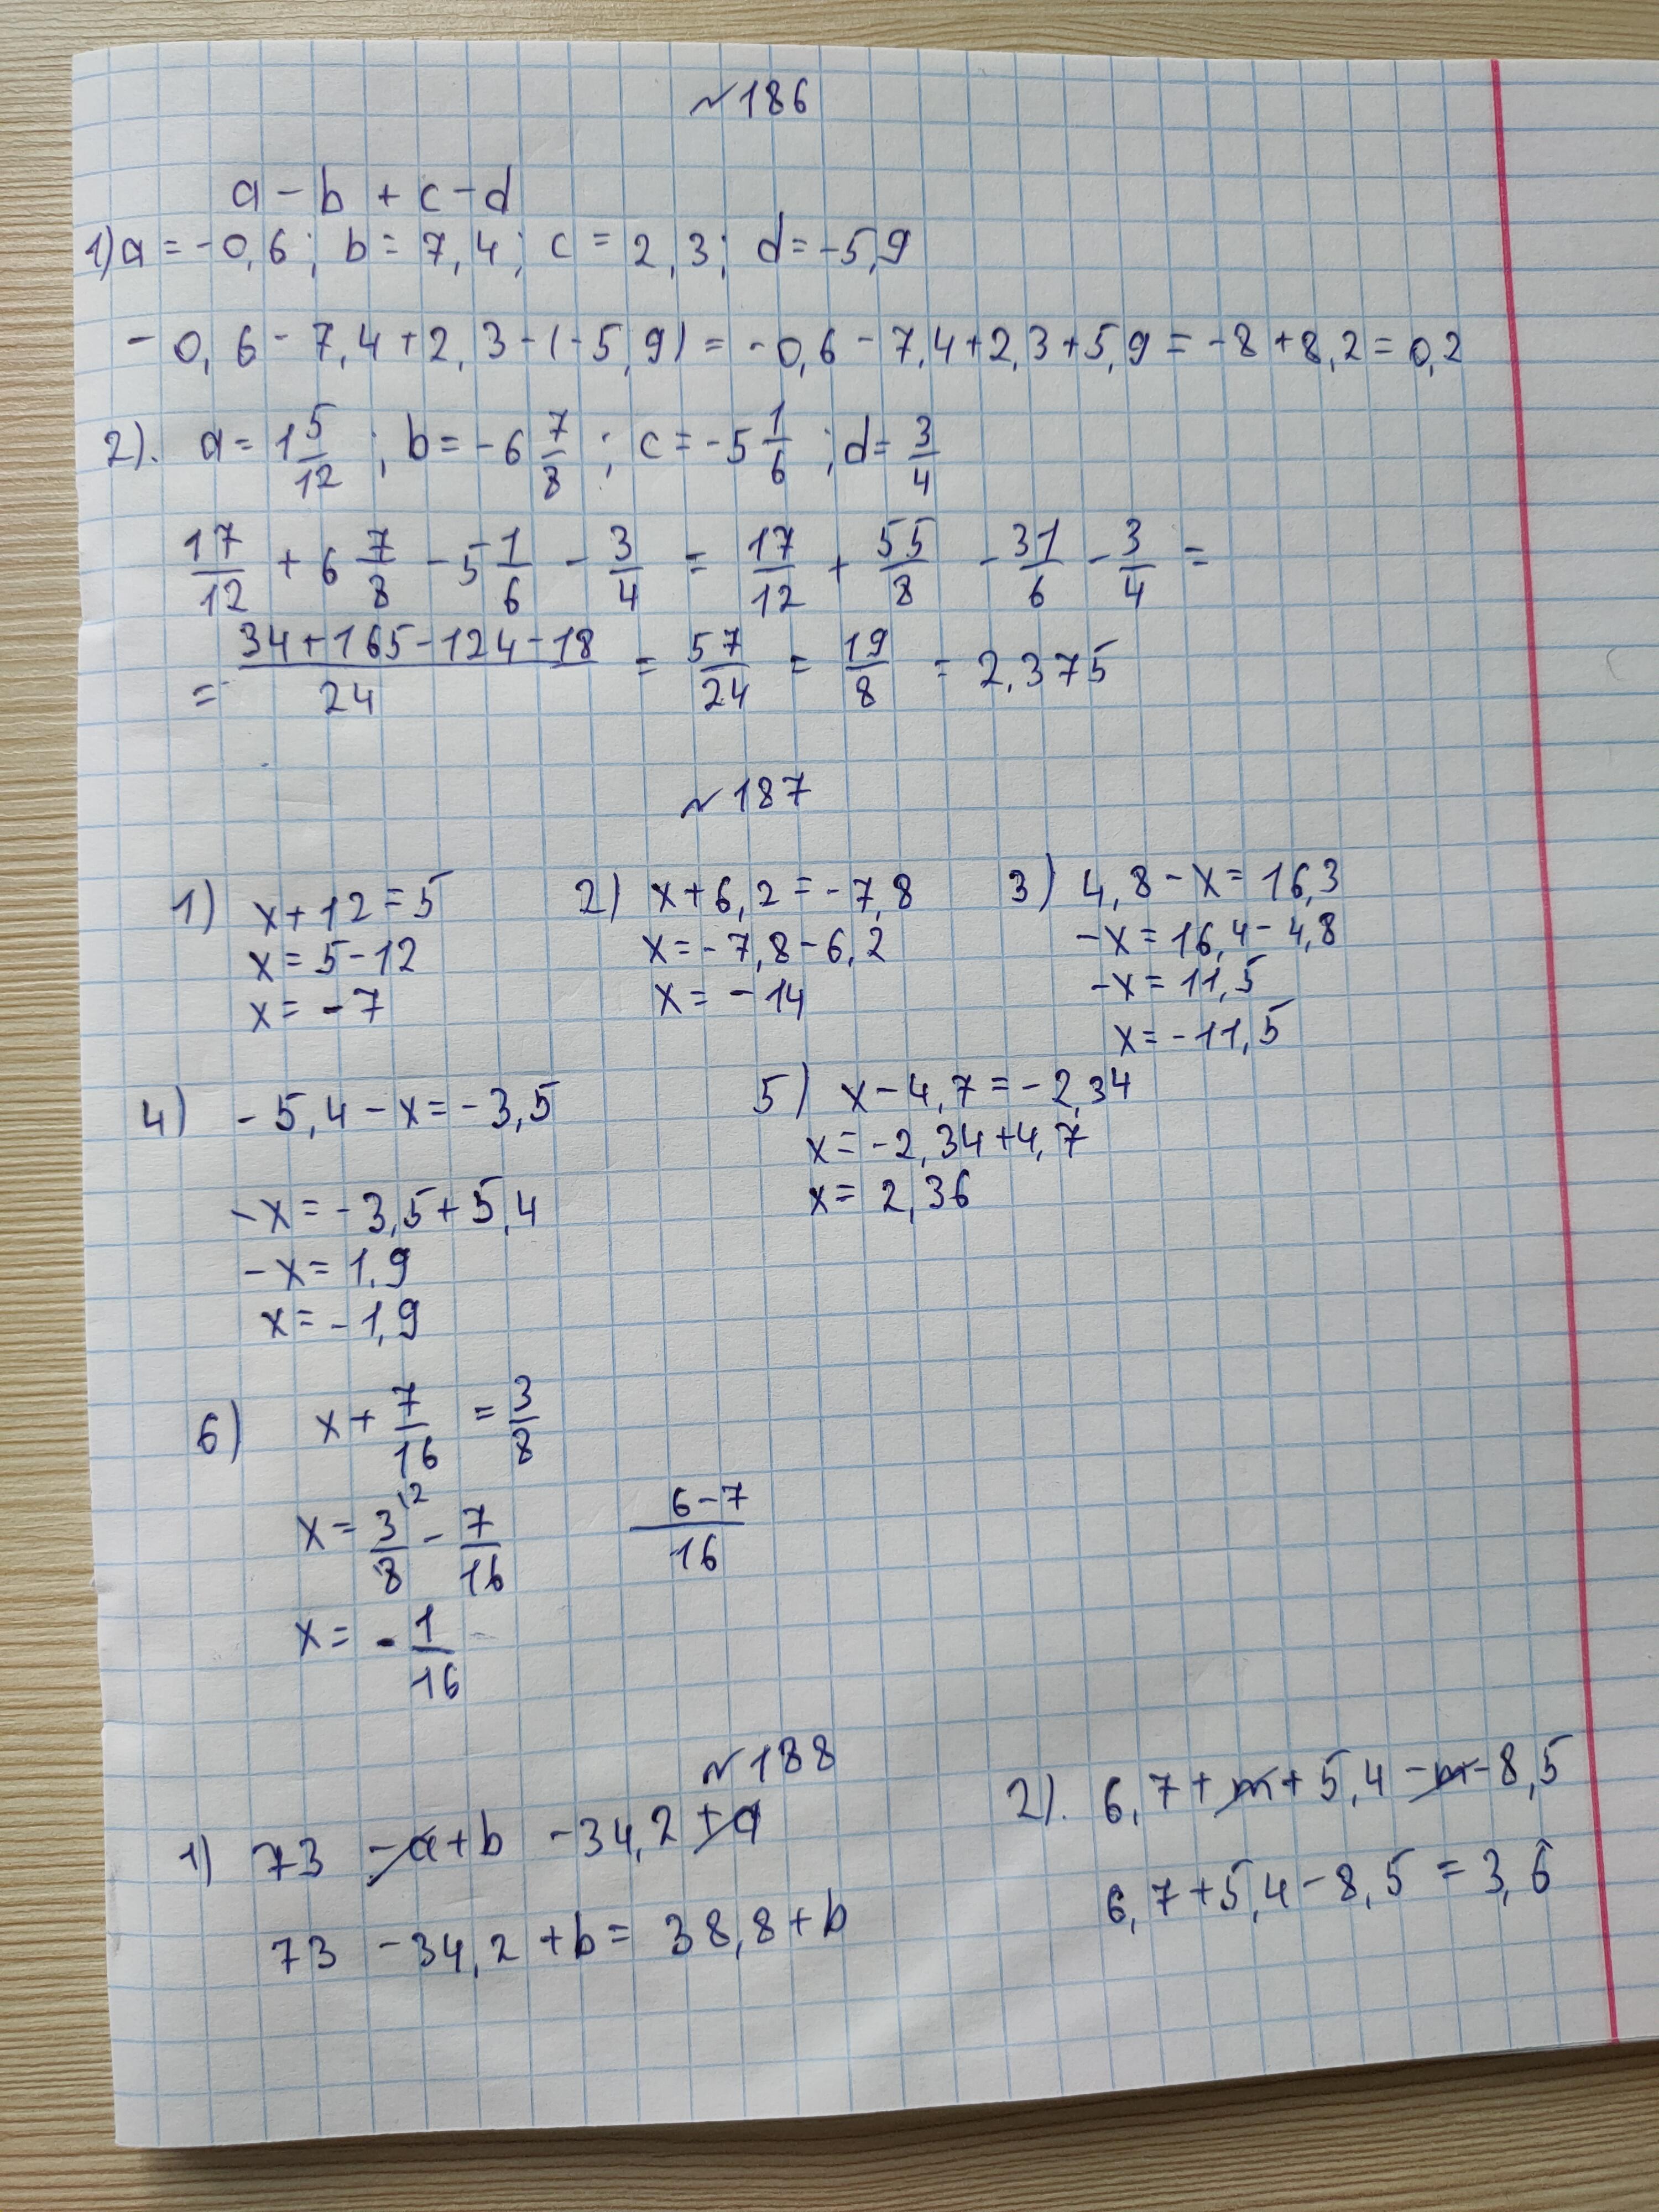 №186
a - b + c - d
1) a = -0,6; b = 7,4; c = 2,3; d = -5,9
-0,6 - 7,4 + 2,3 - (-5,9) = -0,6 - 7,4 + 2,3 + 5,9 = -8 + 8,2 = 0,2
2). a = 1 5/12; b = -6 7/8; c = -5 1/6; d = 3/4
17/12 + 6 7/8 - 5 1/6 - 3/4 = 17/12 + 55/8 - 31/6 - 3/4 =
= (34 + 165 - 124 - 18)/24 = 57/24 = 19/8 = 2,375
№187
1) x + 12 = 5
x = 5 - 12
x = -7
2) x + 6,2 = -7,8
x = -7,8 - 6,2
x = -14
3) 4,8 - x = 16,3
-x = 16,4 - 4,8
-x = 11,5
x = -11,5
4) -5,4 - x = -3,5
-x = -3,5 + 5,4
-x = 1,9
x = -1,9
5) x - 4,7 = -2,34
x = -2,34 + 4,7
x = 2,36
6) x + 7/16 = 3/8
x = 3/8 ^12 - 7/16
6-7/16
x = -1/16
№188
1) 73 - a + b - 34,2 + a
73 - 34,2 + b = 38,8 + b
2). 6,7 + m + 5,4 - m - 8,5
6,7 + 5,4 - 8,5 = 3,6